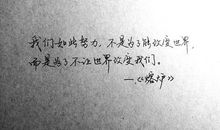 我们如此努力，不是为了能改变世界，
而是为了不让世界改变我们。
——《熔炉》